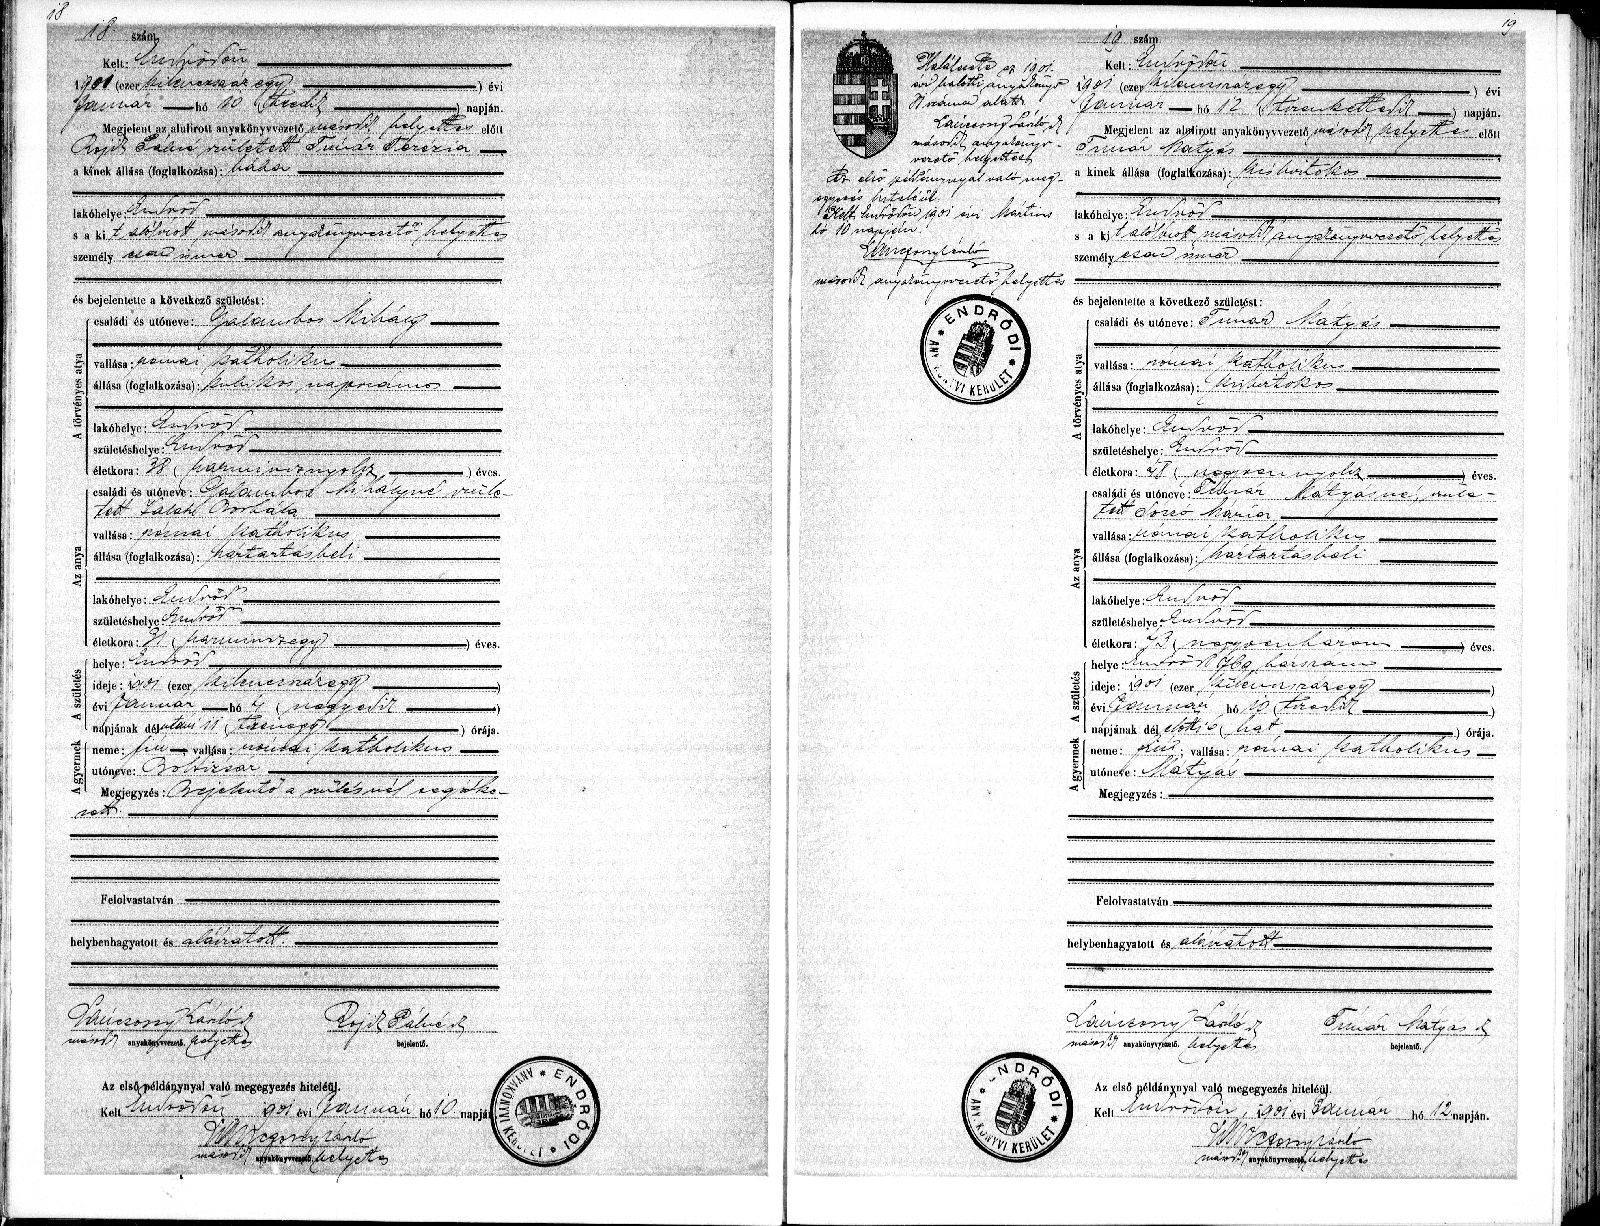 18
18 szám
Kelt: Endrődön
1901 (ezer kilencszázegy) évi
Január hó 10 (tizedik) napján.
Megjelent az alulirott anyakönyvvezető második helyettes előtt
Rojik Pálné, született Timár Terézia
a kinek állása (foglalkozása): bába
lakóhelye: Endrőd
s a kit alólirott második anyakönyvvezető helyettes
személyesen ismer
és bejelentette a következő születést:
A törvényes atya
családi és utóneve: Galambos Mihály
vallása: római katholikus
állása (foglalkozása): kubikos, napszámos
lakóhelye: Endrőd
születéshelye: Endrőd
életkora: 38 (harmincznyolcz) éves.
Az anya
családi és utóneve: Galambos Mihályné szüle-
tett Borbála
vallása: római katholikus
állása (foglalkozása): háztartásbeli
lakóhelye: Endrőd
születéshelye Endrőd
életkora: 31 (harminczegy) éves.
A születés
helye: Endrőd
ideje: 1901 (ezer kilenczszázegy)
évi Január hó 4 (negyedik)
napjának délutáni 11 (tizenegy) órája.
A gyermek
neme: fiú; vallása: római katholikus
utóneve: Boldizsár
Megjegyzés: Bejelentő a szülésnél segédke-
zett.
Felolvastatván
helybenhagyatott és aláiratott.
Rojik Pálné
második anyakönyvvezető helyettes
bejelentő.
Az első példánynyal való megegyezés hiteléül.
Kelt Endrődön, 1901 évi Január hó 10 napján
második anyakönyvvezető helyettes
ENDRŐDI ANYAKÖNYVI KERÜLET
19
19 szám
Haláleset az 1901.
évi halotti anyakönyv
szám alatt
második anyakönyv-
vezető helyettes
Az első példánynyal való meg-
egyezés hiteléül.
Kelt Endrődön 1901 évi Március
hó 10 napján.
második anyakönyvvezető helyettes
ENDRŐDI ANYAKÖNYVI KERÜLET
Kelt: Endrődön
1901 (ezer kilencszázegy) évi
Január hó 12 (tizenkettedik) napján.
Megjelent az alulirott anyakönyvvezető második helyettes előtt
Timár Mátyás
a kinek állása (foglalkozása): kisbirtokos
lakóhelye: Endrőd
s a kit alólirott második anyakönyvvezető helyettes
személyesen ismer
és bejelentette a következő születést:
A törvényes atya
családi és utóneve: Timár Mátyás
vallása: római katholikus
állása (foglalkozása): kisbirtokos
lakóhelye: Endrőd
születéshelye: Endrőd
életkora: 48 (negyvennyolcz) éves.
Az anya
családi és utóneve: Timár Mátyásné, szüle-
tett Mária
vallása: római katholikus
állása (foglalkozása): háztartásbeli
lakóhelye: Endrőd
születéshelye Endrőd
életkora: 43 (negyvenhárom) éves.
A születés
helye: Endrőd házszám
ideje: 1901 (ezer kilenczszázegy)
évi Január hó 10 (tizedik)
napjának délelőtti 6 (hat) órája.
A gyermek
neme: fiú; vallása: római katholikus
utóneve: Mátyás
Megjegyzés:
Felolvastatván
helybenhagyatott és aláiratott
Timár Mátyás
második anyakönyvvezető helyettes
bejelentő.
Az első példánynyal való megegyezés hiteléül.
Kelt Endrődön, 1901 évi Január hó 12 napján.
második anyakönyvvezető helyettes
ENDRŐDI ANYAKÖNYVI KERÜLET